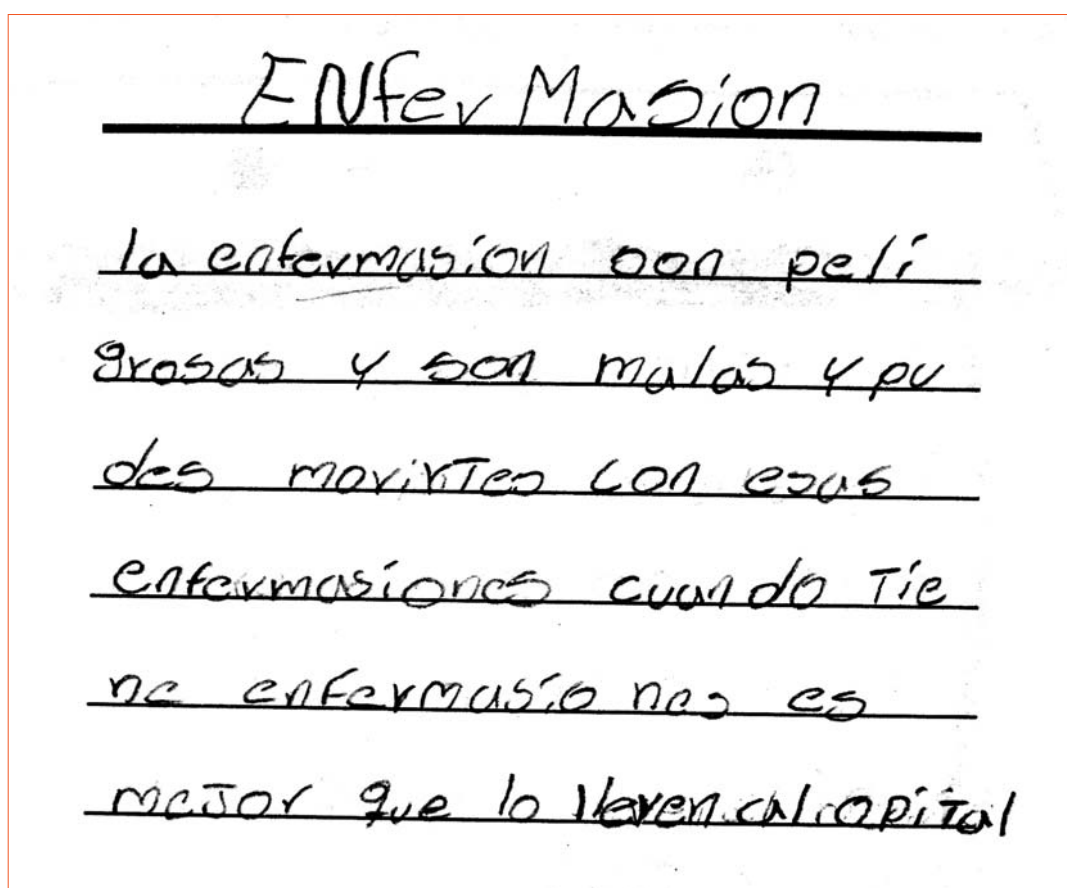 ENfer Masion
la enfermasion son peli
grosas y son malas y pu
des morirtes con esas
enfermasiones cuando Tie
ne enfermasio nes es
meJor que lo lleven al opiTal